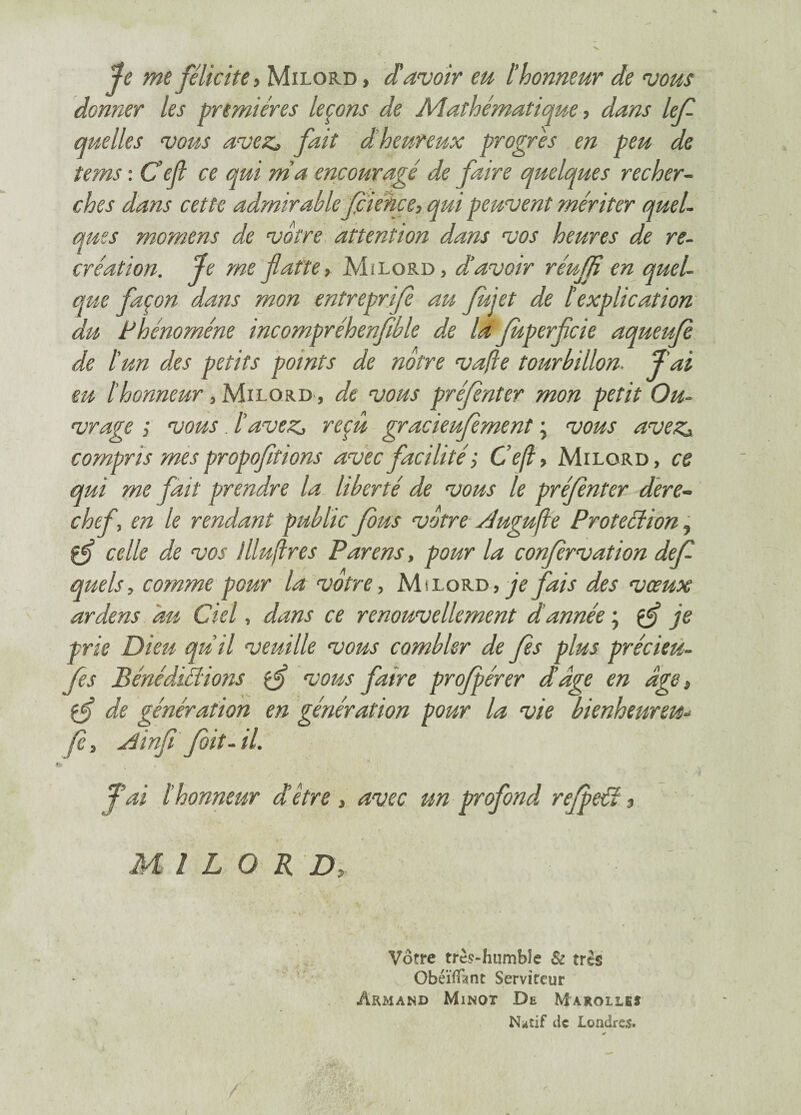 Je me félicite, MILORD, d'avoir eu l'honneur de vous
donner les prémiéres leçons de Mathématique, dans leſ-
quelles vous avez fait d'heureux progrès en peu de
tems : C'eſt ce qui m'a encouragé de faire quelques recher-
ches dans cette admirable ſcience, qui peuvent mériter quel-
ques momens de vôtre attention dans vos heures de re-
création. Je me flatte, MILORD, d'avoir réuſſi en quel-
que façon dans mon entrepriſe au ſujet de l'explication
du Phénoméne incompréhenſible de la ſuperficie aqueuſe
de l'un des petits points de nôtre vaſte tourbillon. J'ai
eu l'honneur, MILORD, de vous préſenter mon petit Ou-
vrage ; vous l'avez reçû gracieuſement ; vous avez
compris mes propoſitions avec facilité ; C'eſt, MILORD, ce
qui me fait prendre la liberté de vous le préſenter dère-
chef, en le rendant public ſous vôtre Auguſte Protection,
& celle de vos Illuſtres Parens, pour la conſervation deſ-
quels, comme pour la vôtre, MILORD, je fais des vœux
ardens au Ciel, dans ce renouvellement d'année ; & je
prie Dieu qu'il veuille vous combler de ſes plus précieu-
ſes Bénédictions & vous faire proſpérer d'âge en âge,
& de génération en génération pour la vie bienheureu-
ſe, Ainſi ſoit-il.
J'ai l'honneur d'être, avec un profond reſpect,
MILORD,
Vôtre très-humble & très
Obéïſſant Serviteur
ARMAND MINOT DE MAROLLES
Natif de Londres.